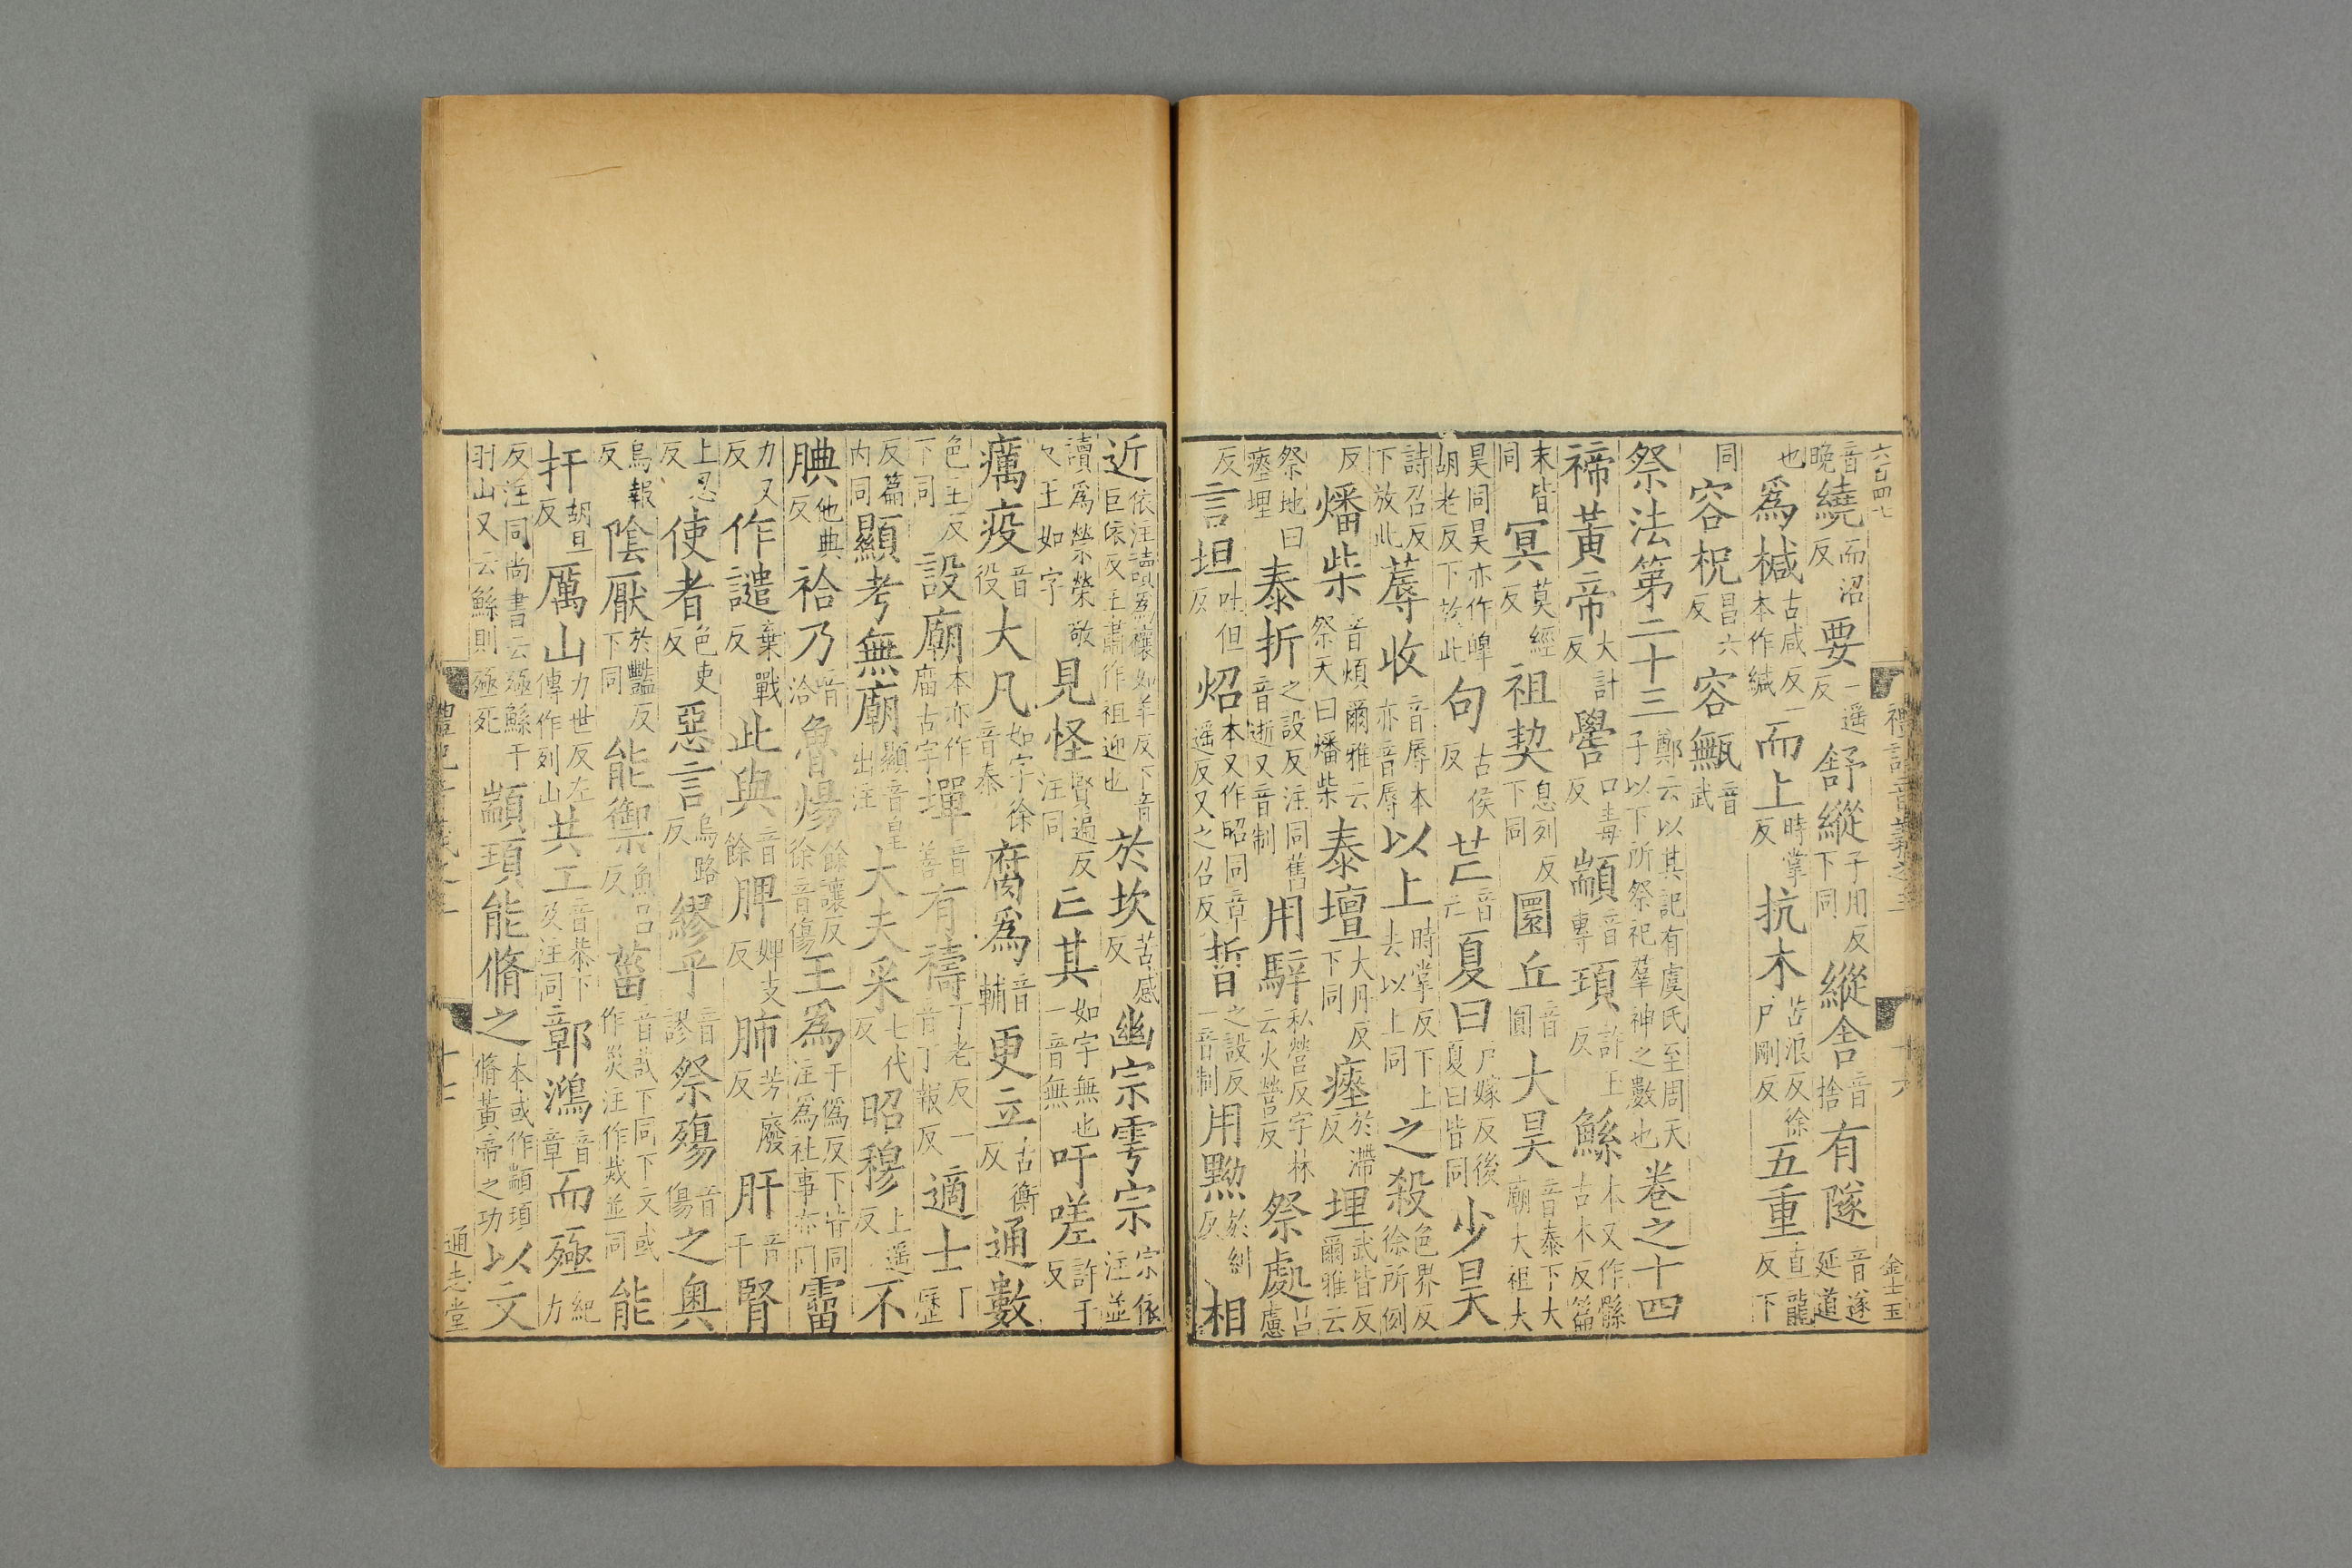 六百四七
禮記音義之三
十六
金士玉
音晚繞而沼反要一遥反舒縱子用反下同縱舍音捨有隧音遂延道
也爲椷古咸反本作緘而上時掌反抗木苦浪反徐戸剛反五重直龍反下
同容柷昌六反容甒音武
祭法第二十三鄭云以其記有虞氏至周天子以下所祭祀羣神之數也卷之十四
禘黃帝大計反嚳口毒反顓音專頊許玉反鯀本又作縣古本反篇
末皆同冥莫經反祖契息列反下同圜丘音圓大昊音泰下大廟大祖大
昊同昊亦作皞胡老反下放此句古侯反芒音亡夏曰戸嫁反後夏曰皆同少昊
詩召反下放此蓐收音辱本亦音辱以上時掌反下上去以上同之殺色界反徐所例
反燔柴音煩爾雅云祭天曰燔柴泰壇大丹反下同瘞於滯反埋武皆反爾雅云
祭地曰瘞埋泰折之設反注同舊音逝又音制用騂私營反字林云火營反祭處昌慮
反言坦吐但反炤本又作昭同章遥反又之召反晢之設反一音制用黝於糾反相
近依注讀爲禳如羊反下音巨依反王肅作祖迎也於坎苦感反幽宗雩宗宗依注並
讀爲禜榮敬反王如字見怪賢遍反注同亡其如字無也一音無吁嗟許于反
癘疫音役大凡如字徐音泰腐爲音輔更立古衡反通數
色主反下同設廟本亦作庿古字墠音善有禱丁老反一音丁報反適士丁歷
反篇内同顯考無廟顯音皇出注大夫采七代反昭穆上遥反不
腆他典反祫乃音洽魯煬餘讓反徐音傷王爲于僞反下皆同注爲社事亦同霤
力又反作譴棄戰反此與音餘脾婢支反肺芳廢反肝音干腎
上忍反使者色吏反惡言烏路反繆乎音謬祭殤音傷之奥
烏報反陰厭於豔反下同能禦魚呂反菑音烖下同下文或作災注作烖並同能
扞胡旦反厲山力世反左傳作列山共工音恭下及注同鄣鴻音章而殛紀力
反注同尚書云殛鯀于羽山又云鯀則殛死顓頊能脩之本或作顓頊脩黃帝之功以文
禮記音義之三
十七
通志堂